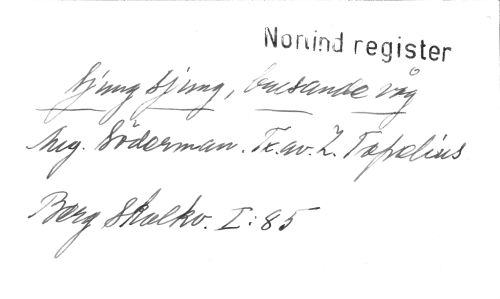 Norlind register
Sjung sjung, brusande våg
Aug. Söderman. Tx. av. Z. Topelius
Berg Skolkv. I:85